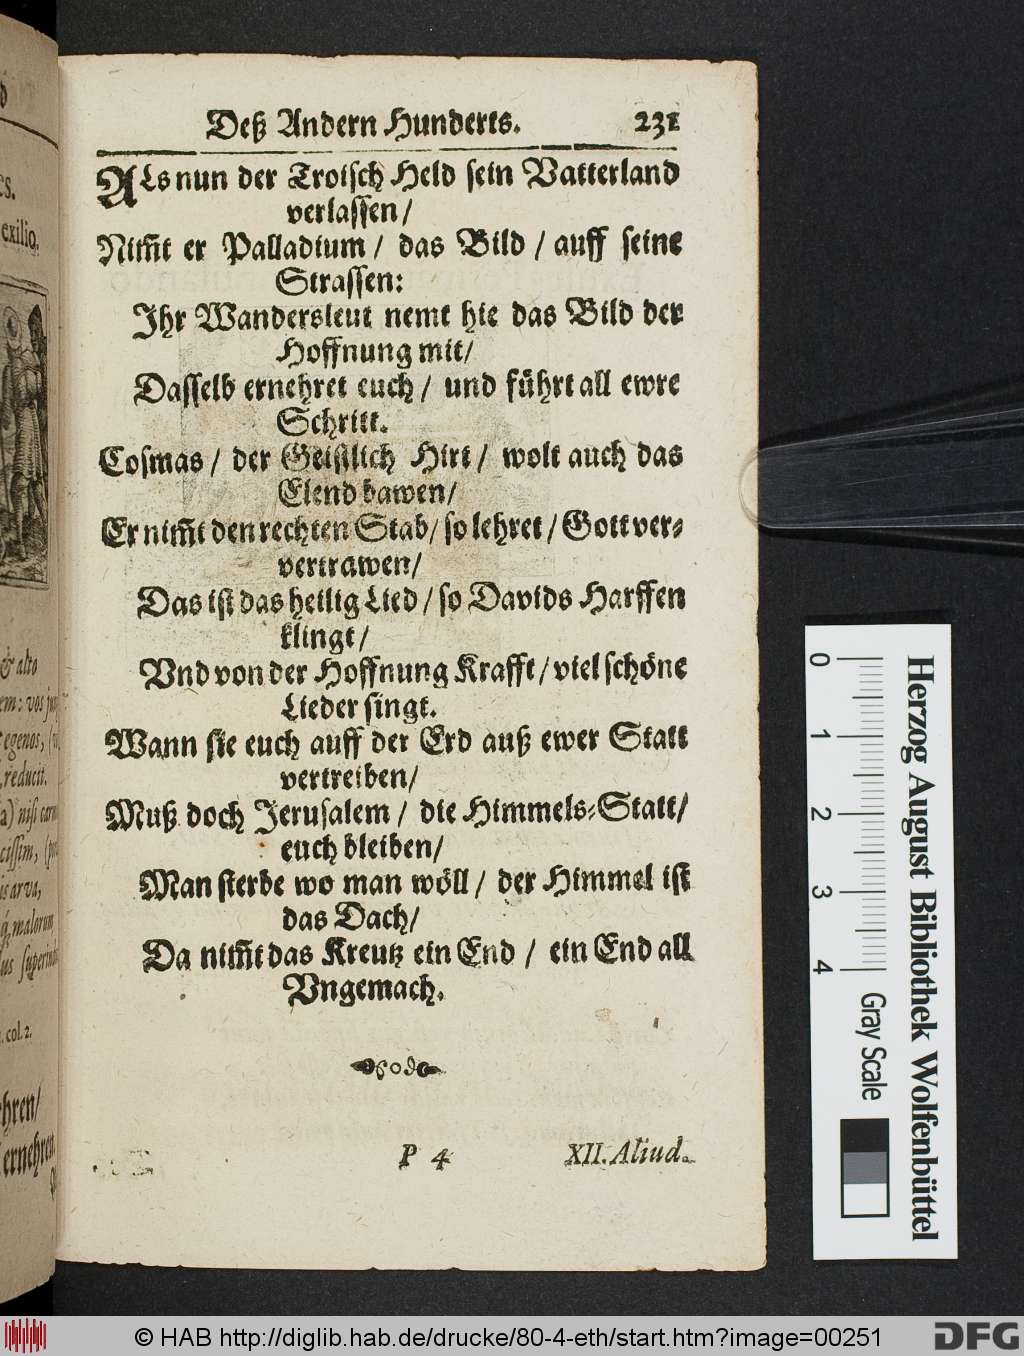 Deß Andern Hunderts. 231
ALs nun der Troisch Held sein Vatterland
verlassen/
Nim̃t er Palladium / das Bild / auff seine
Strassen:
Ihr Wandersleut nemt hie das Bild der
Hoffnung mit/
Dasselb ernehret euch / und führt all ewre
Schritt.
Cosmas / der Geistlich Hirt / wolt auch das
Elend bawen/
Er nim̃t den rechten Stab/ so lehret / Gott ver-
vertrawen/
Das ist das heilig Lied / so Davids Harffen
klingt/
Vnd von der Hoffnung Krafft / viel schöne
Lieder singt.
Wann sie euch auff der Erd auß ewer Statt
vertreiben/
Muß doch Jerusalem / die Himmels-Statt/
euch bleiben/
Man sterbe wo man wöll / der Himmel ist
das Dach/
Da nim̃t das Kreutz ein End / ein End all
Vngemach.
P 4 XII. Aliud.
exilio.
& alto
em: vos
egenos,
reducit.
a) nisi
cissim,
is arva,
malorum
col. 2.
ernehren.
0 1 2 3 4
Herzog August Bibliothek Wolfenbüttel
Gray Scale
© HAB http://diglib.hab.de/drucke/80-4-eth/start.htm?image=00251
DFG